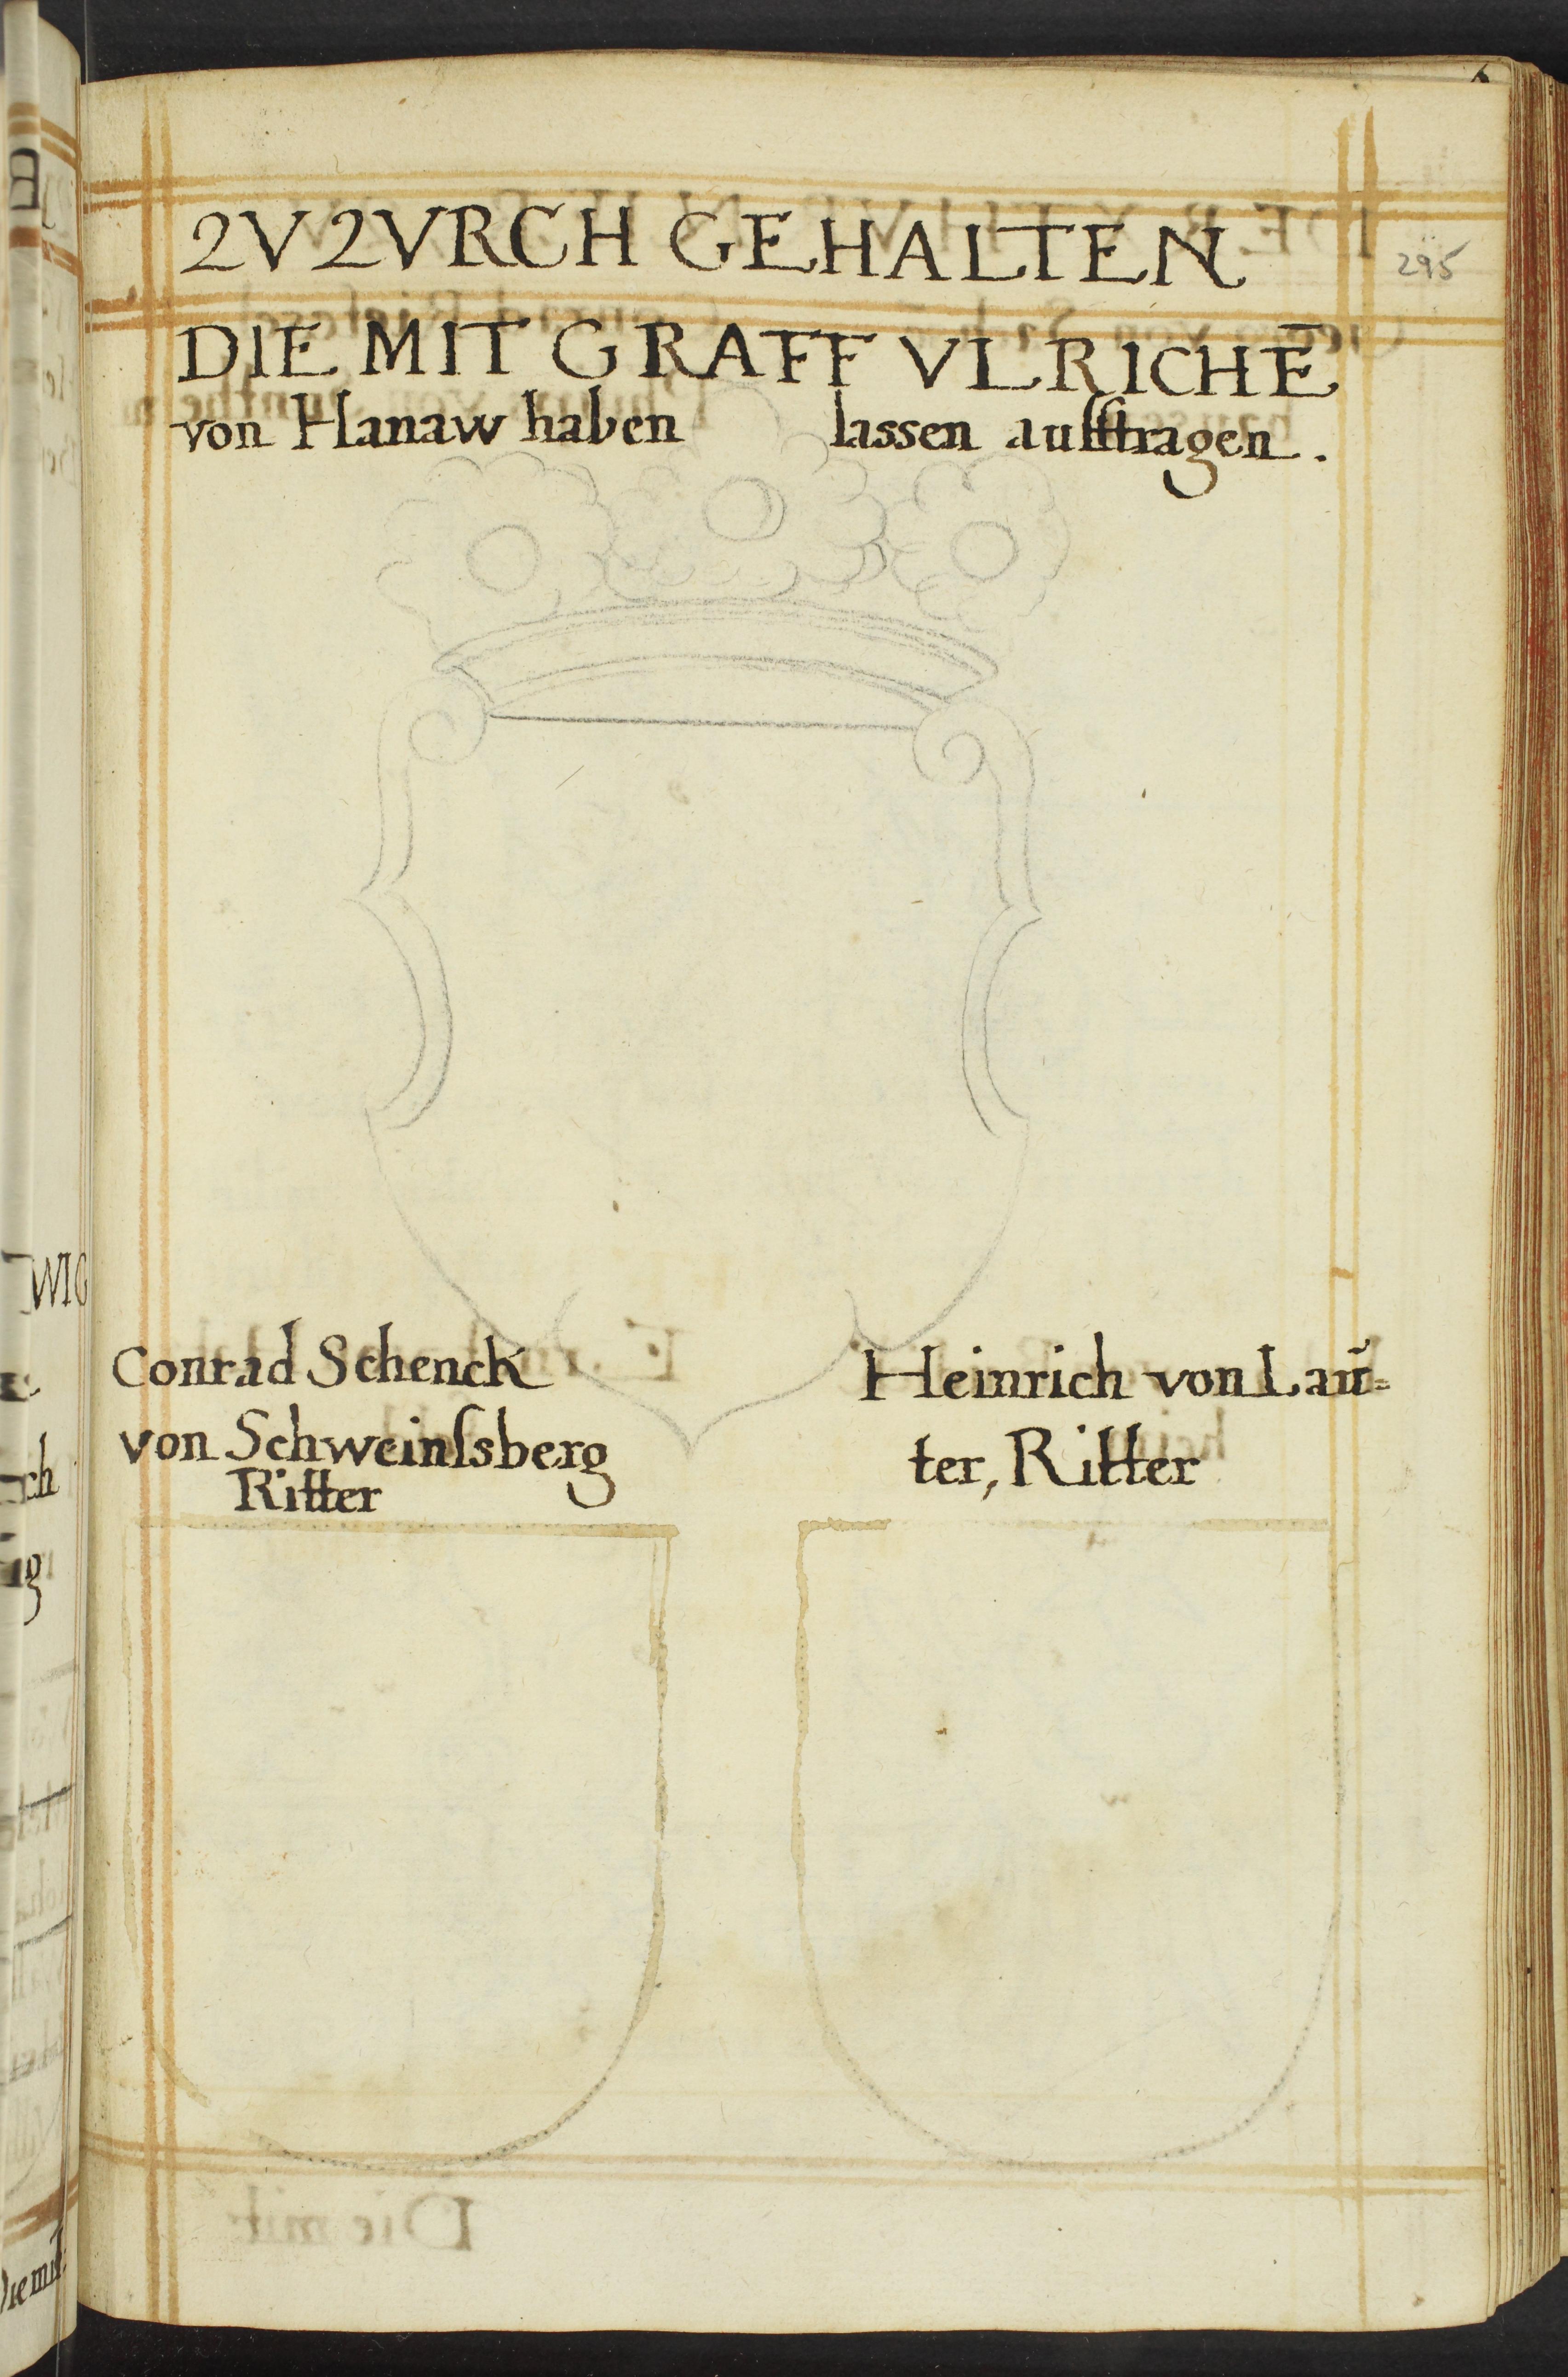 ZV ZVRCH GEHALTEN
295
DIE MIT GRAFF VLRICHĒ
von Hanaw haben lassen aufftragen.
Conrad Schenck
von Schweinſsberg
Ritter
Heinrich von Laŭ=
ter, Ritter